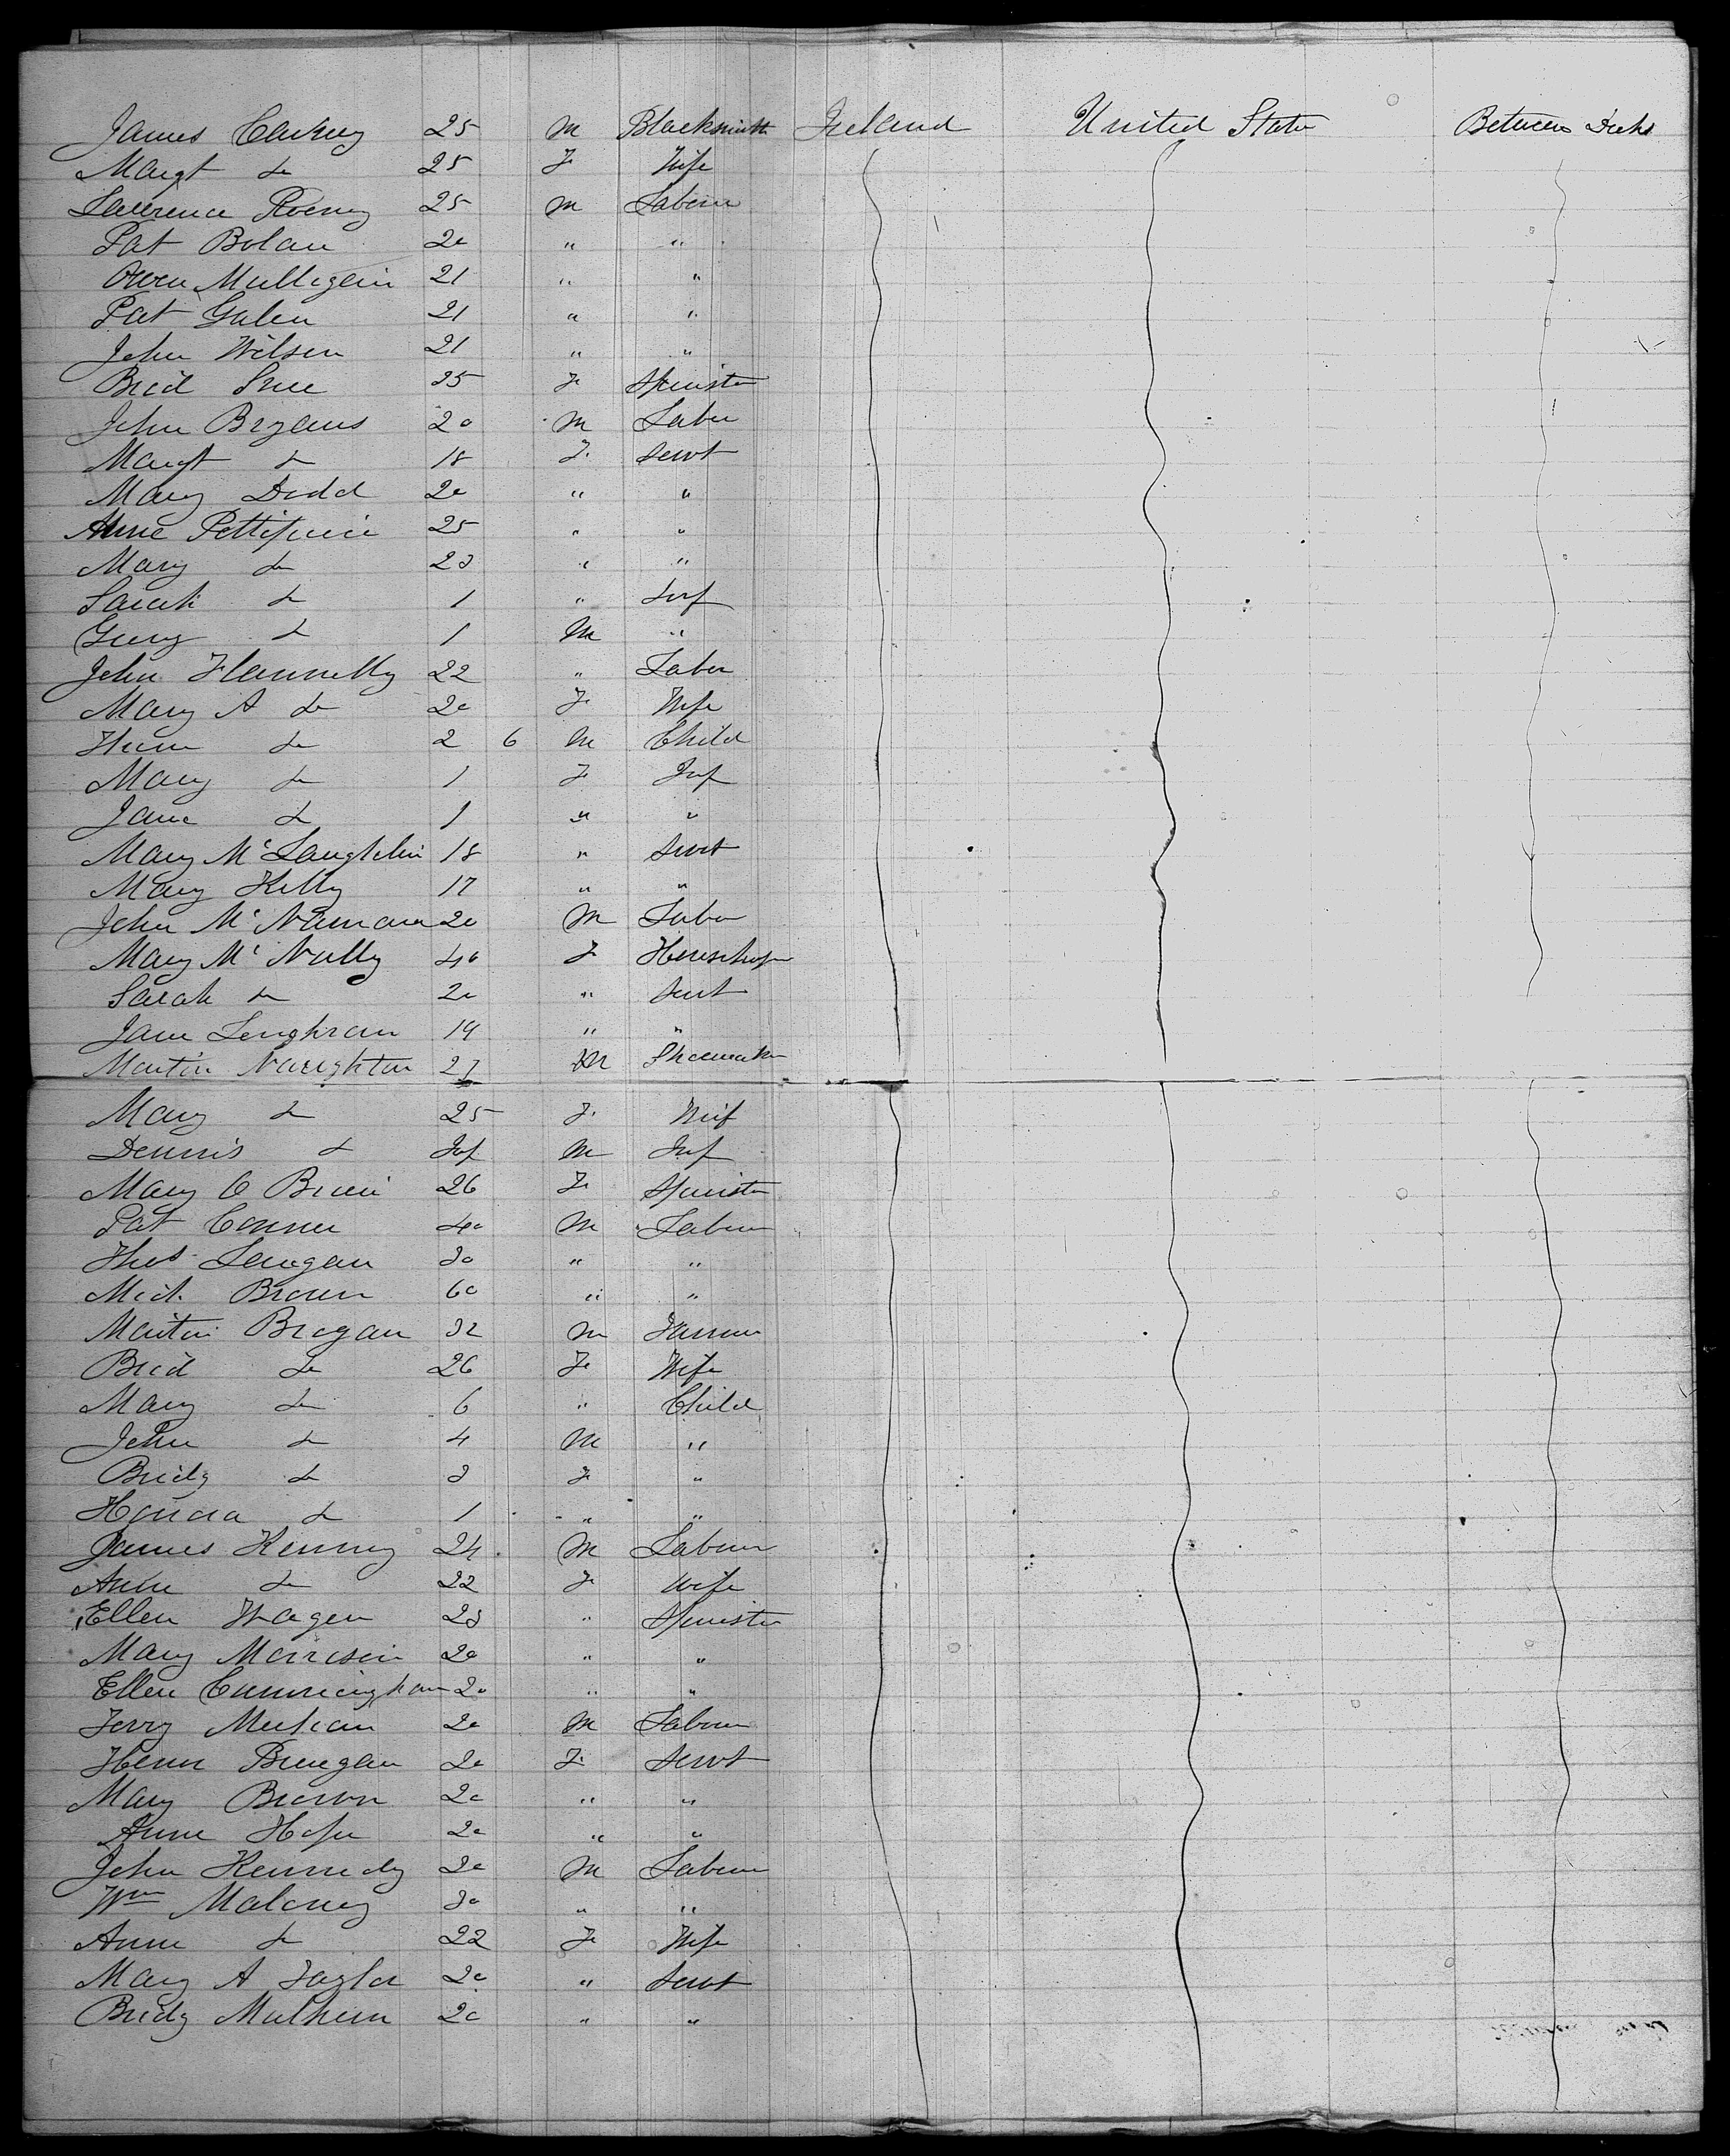 James 25 M Blacksmith Ireland United State Between Decks
Margt Do 25 F Wife
Lawrence Rooney 25 M Labour
Pat Bolan 20 " "
Owen Mulligan 21 " "
Pat Galen 21 " "
John Wilson 21 " "
Brid 25 F Spinster
John Bryans 20 M Labor
Margt Do 18 F Servt
Mary Dodd 20 " "
Anne 25 " "
Mary Do 23 " "
Sarah Do 1 " Inf
Do 1 M "
John Flannelly 22 " Labor
Mary A Do 20 F Wife
Do 2 6 M Child
Mary Do 1 F Inf
Jane Do 1 " "
Mary McLaughlin 18 " Servt
Mary Kelly 17 " "
John McNamara 20 M Labor
Mary McNully 40 F
Sarah Do 20 " Servt
Jane Loughran 19 " "
Martin Naughton 27 M Shoemaker
Mary Do 25 F Wife
Dennis Do Inf M Inf
Mary O Brien 26 F Spinster
Pat Conner 40 M Labour
Thos Langan 30 " "
Mich Brown 60 " "
Martin Brogan 32 M Farmer
Brid Do 26 F Wife
Mary Do 6 " Child
John Do 4 M "
Bridg Do 3 F "
Honora Do 1 " "
James Kenny 24 M Labour
Anne Do 22 F Wife
Ellen 23 " Spinster
Mary Morrison 20 " "
Ellen Cunningham 20 " "
Terry 20 M Labour
Honr 20 F Servt
Mary Brown 20 " "
Anne Hope 20 " "
John Kennedy 20 M Labour
Wm Maloney 30 " "
Anne Do 22 F Wife
Mary A Taylor 20 " Servt
Bridg Mulhern 20 " "